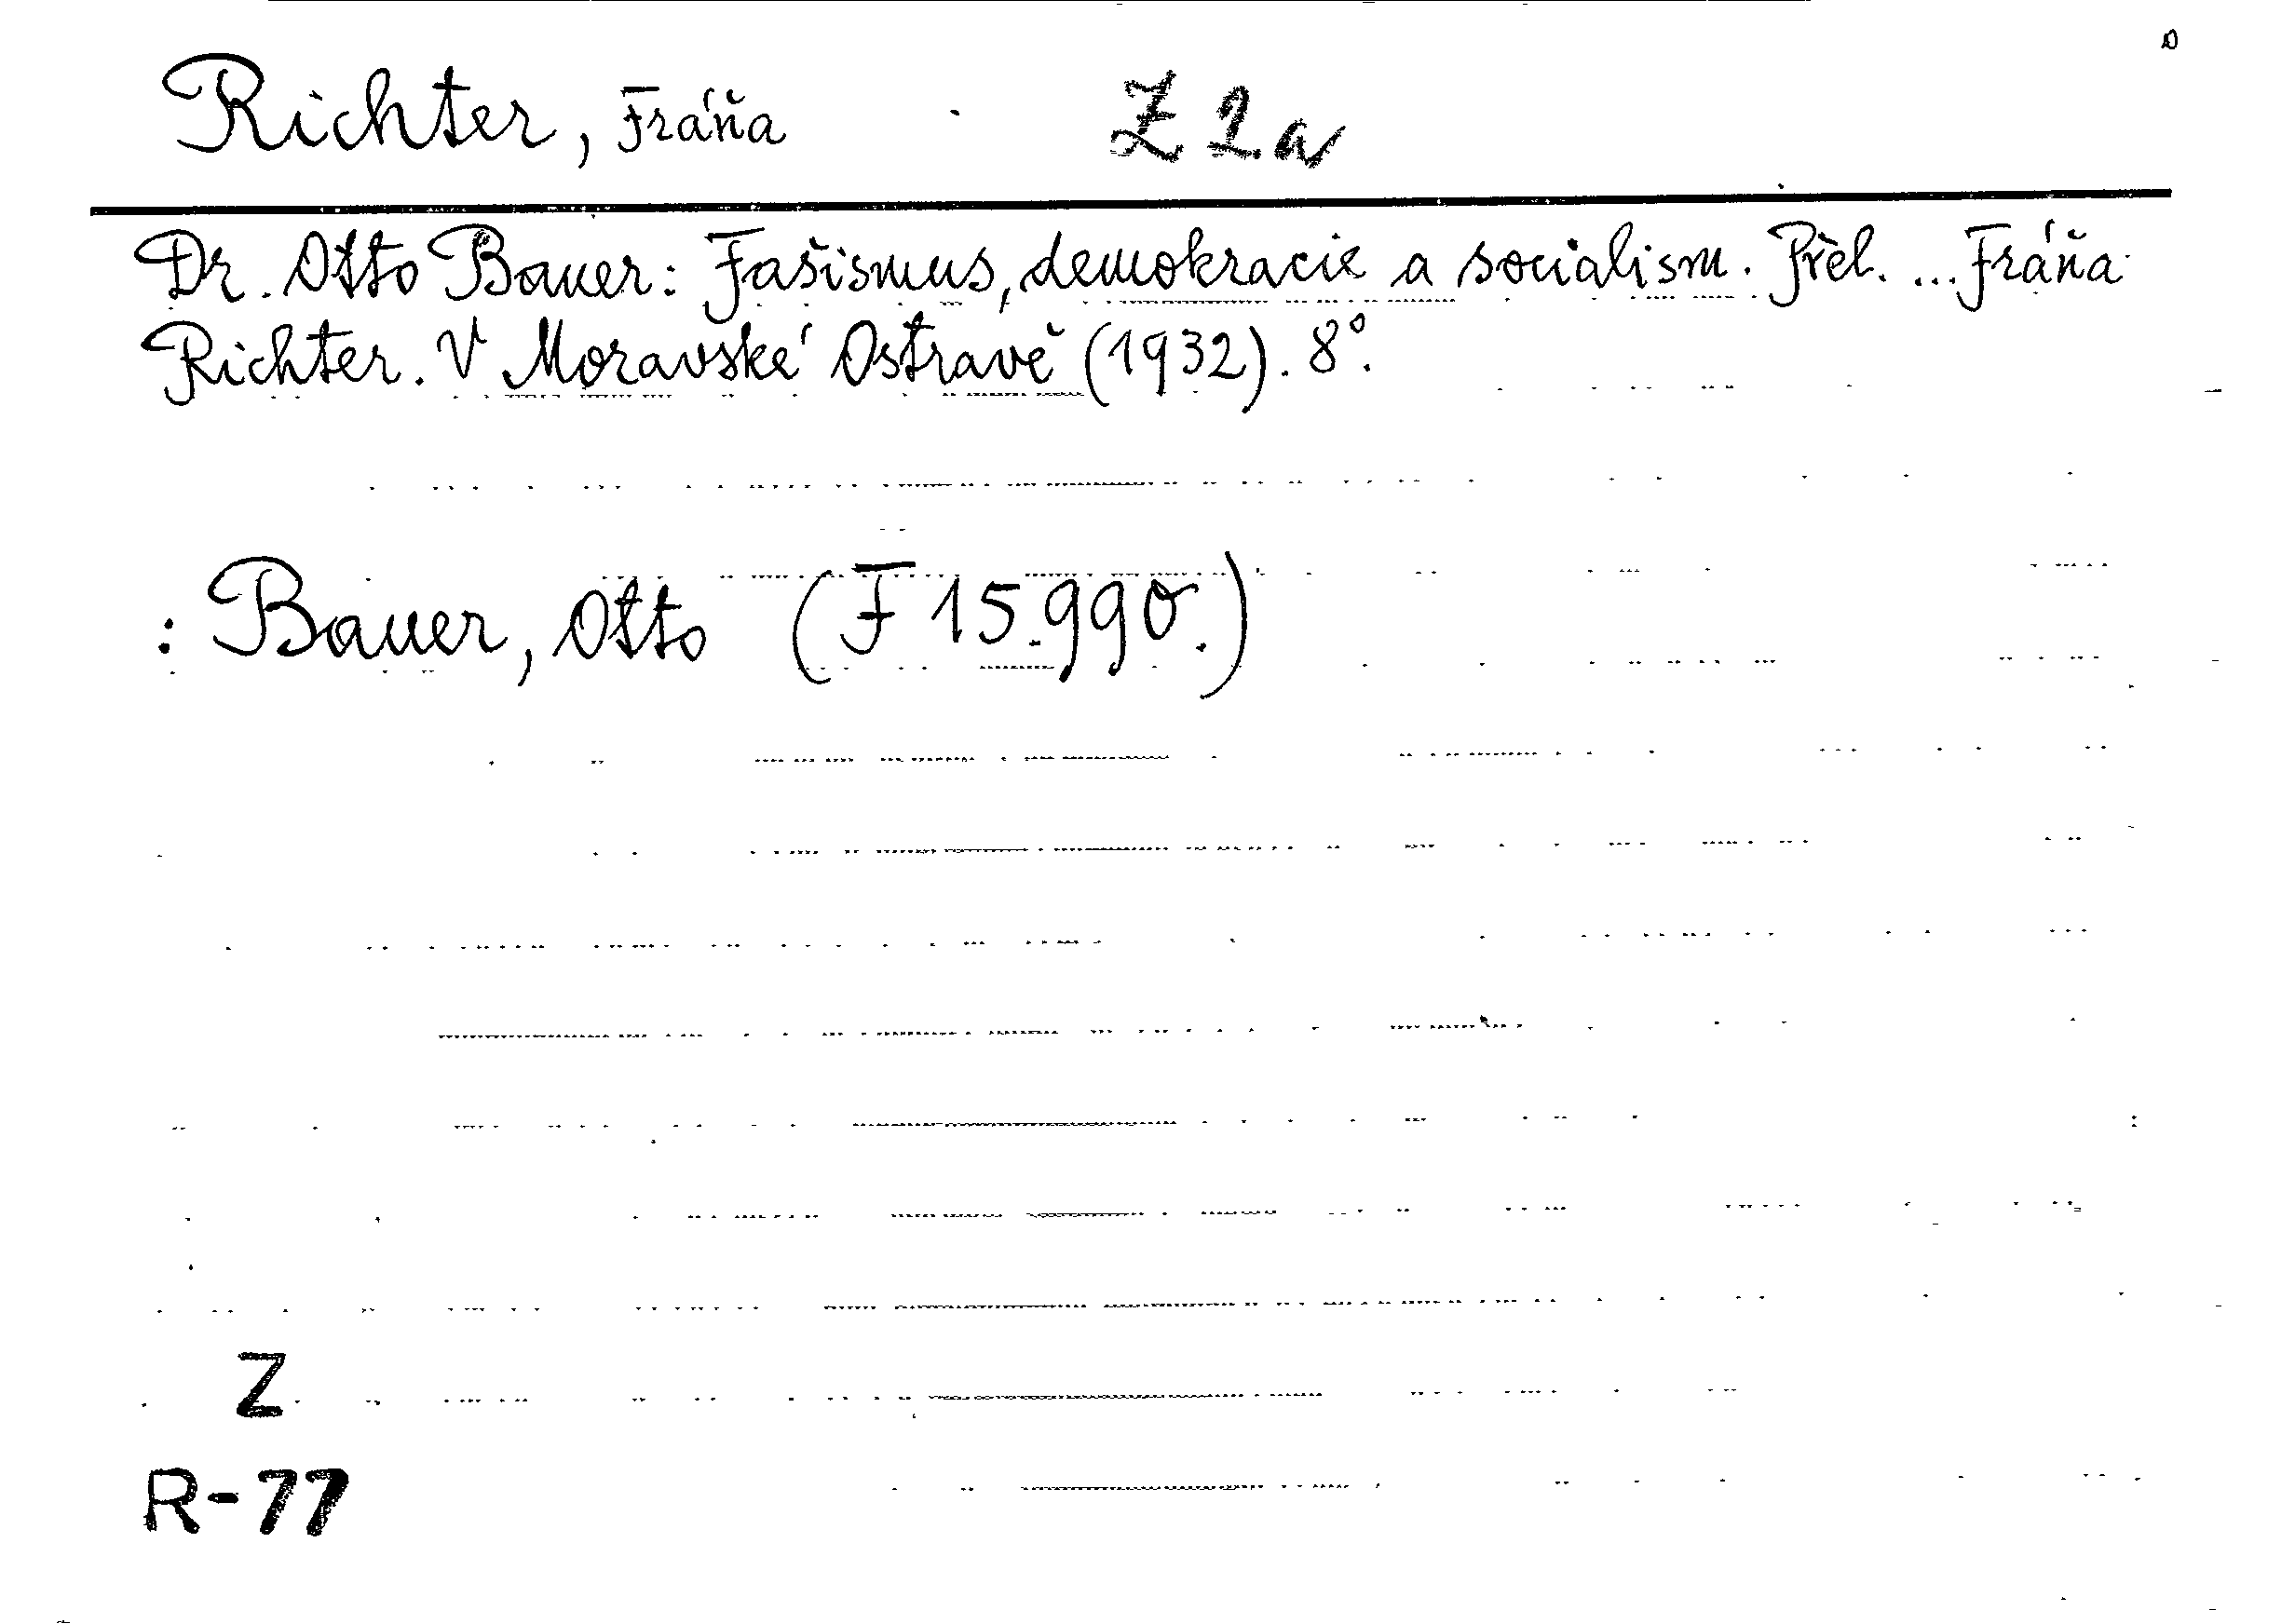 Richter, Fráňa Z 2a
Dr. Otto Bauer: Fašismus, demokracie a socialism. Přel. ... Fráňa
Richter. V Moravské Ostravě (1932). 8°.
: Bauer, Otto (F 15.990.)
Z
R-77